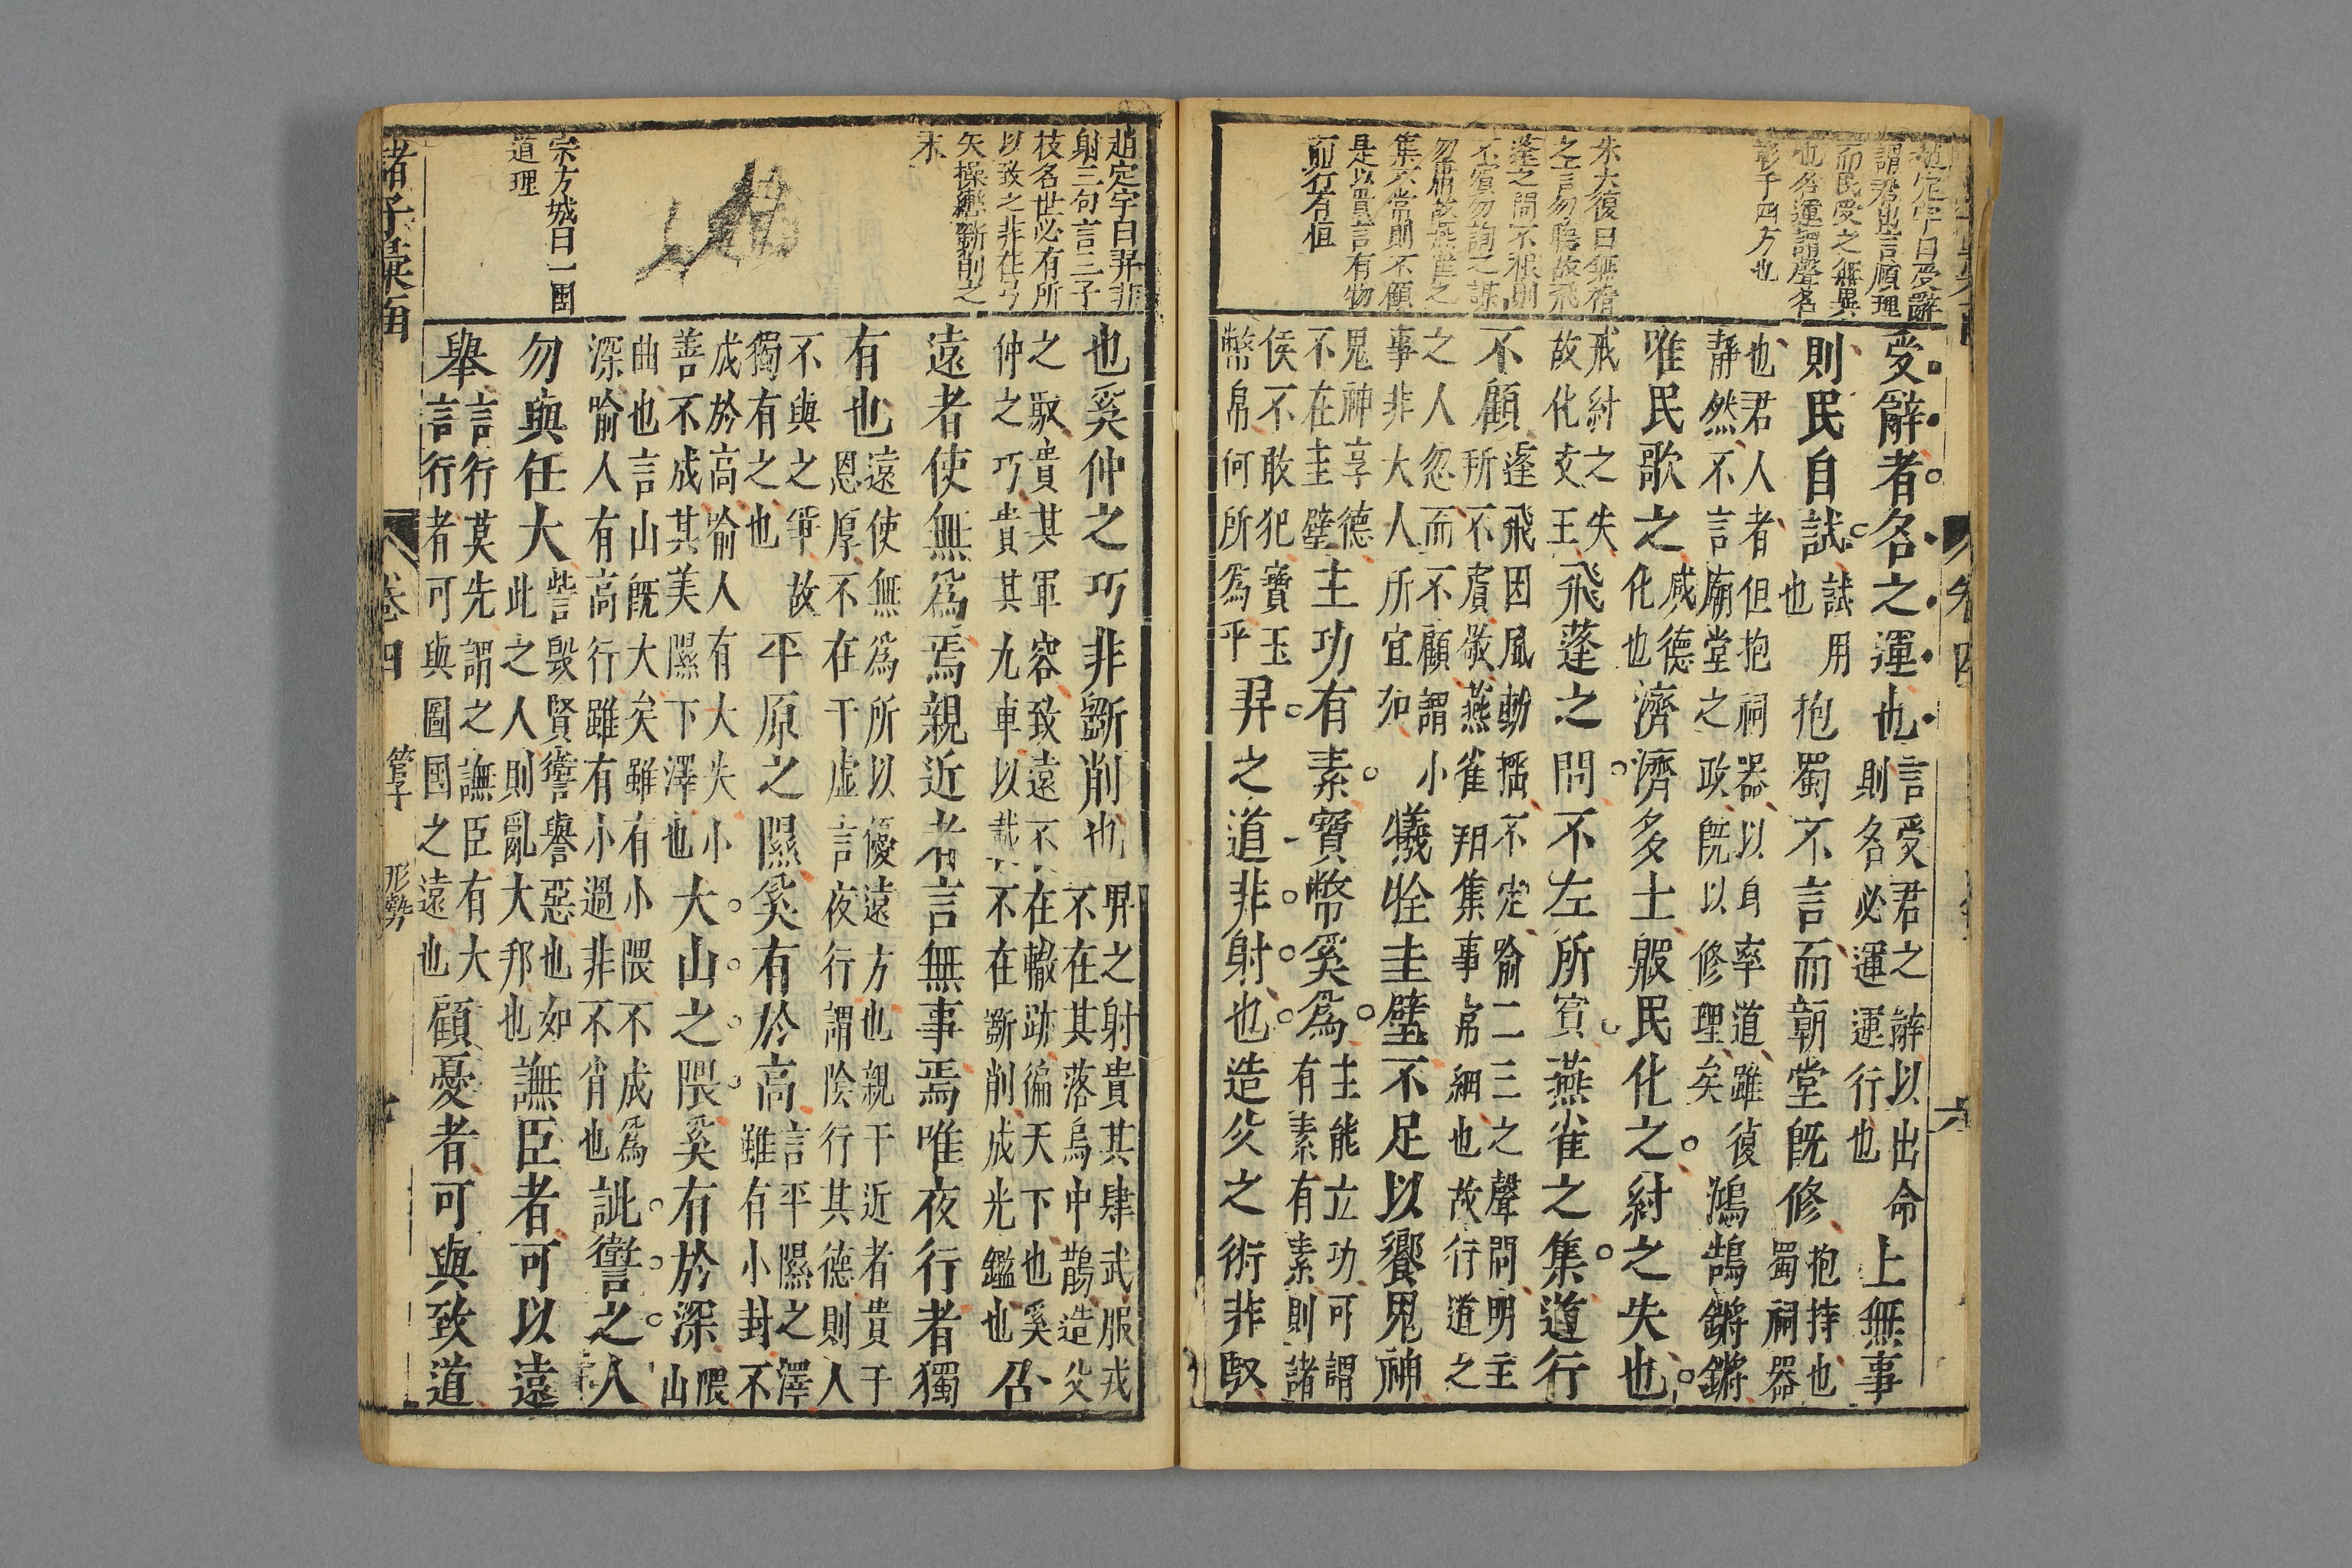 趙定宇曰受辭
謂君也言順理
而民受之無異
也名運謂聲名
彰于四方也
朱大復曰無稽
之言勿聽故飛
蓬之問不根則
不賓勿詢之謀
勿庸故燕雀之
集不常則不顧
是以貴言有物
而行有恒
受辭者名之運也言受君之辭以出命則名必運運行也上無事
則民自試試用也抱蜀不言而朝堂既修抱持也蜀祠器
也君人者但抱祠器以身率道雖復靜然不言廟堂之政既以修理矣鴻鵠鏘鏘
唯民歌之感德化也濟濟多士殷民化之紂之失也
戒紂之失故化文王飛蓬之問不左所賓燕雀之集道行
不顧蓬飛因風動搖不定喻二三之聲問明主所不賓敬燕雀翔集事帛細也故行道之
之人忽而不顧謂小事非大人所宜知犧牷圭璧不足以饗鬼神
鬼神享德不在圭璧主功有素寶幣奚爲主能立功可謂有素有素則諸
侯不敢犯寶玉幣帛何所爲乎羿之道非射也造父之術非馭
卷四
六
趙定宇曰羿非
射三句言三子
技名世必有所
以致之非在弓
矢操轡斲削之
末
宗方城曰一團
道理
也奚仲之巧非斲削也羿之射貴其肆武服戎不在其落烏中鵲造父
之馭貴其軍容致遠不在轍跡徧天下也奚仲之巧貴其九車以載不在斲削成光鑑也召
遠者使無爲焉親近者言無事焉唯夜行者獨
有也遠使無爲所以優遠方也親于近者貴于恩厚不在于虛言夜行謂陰行其德則人
不與之爭故獨有之也平原之隰奚有於高言平隰之澤雖有小封不
成於高喻人有大失小善不成其美隰下澤也大山之隈奚有於深隈山
曲也言山既大矣雖有小隈不成爲深喻人有高行雖有小過非不肖也訿讆之人
勿與任大訾毀賢讆譽惡也如此之人則亂大邦也譕臣者可以遠
舉言行莫先謂之譕臣有大言行者可與圖國之遠也顧憂者可與致道
諸子彙函
卷四
管子
形勢